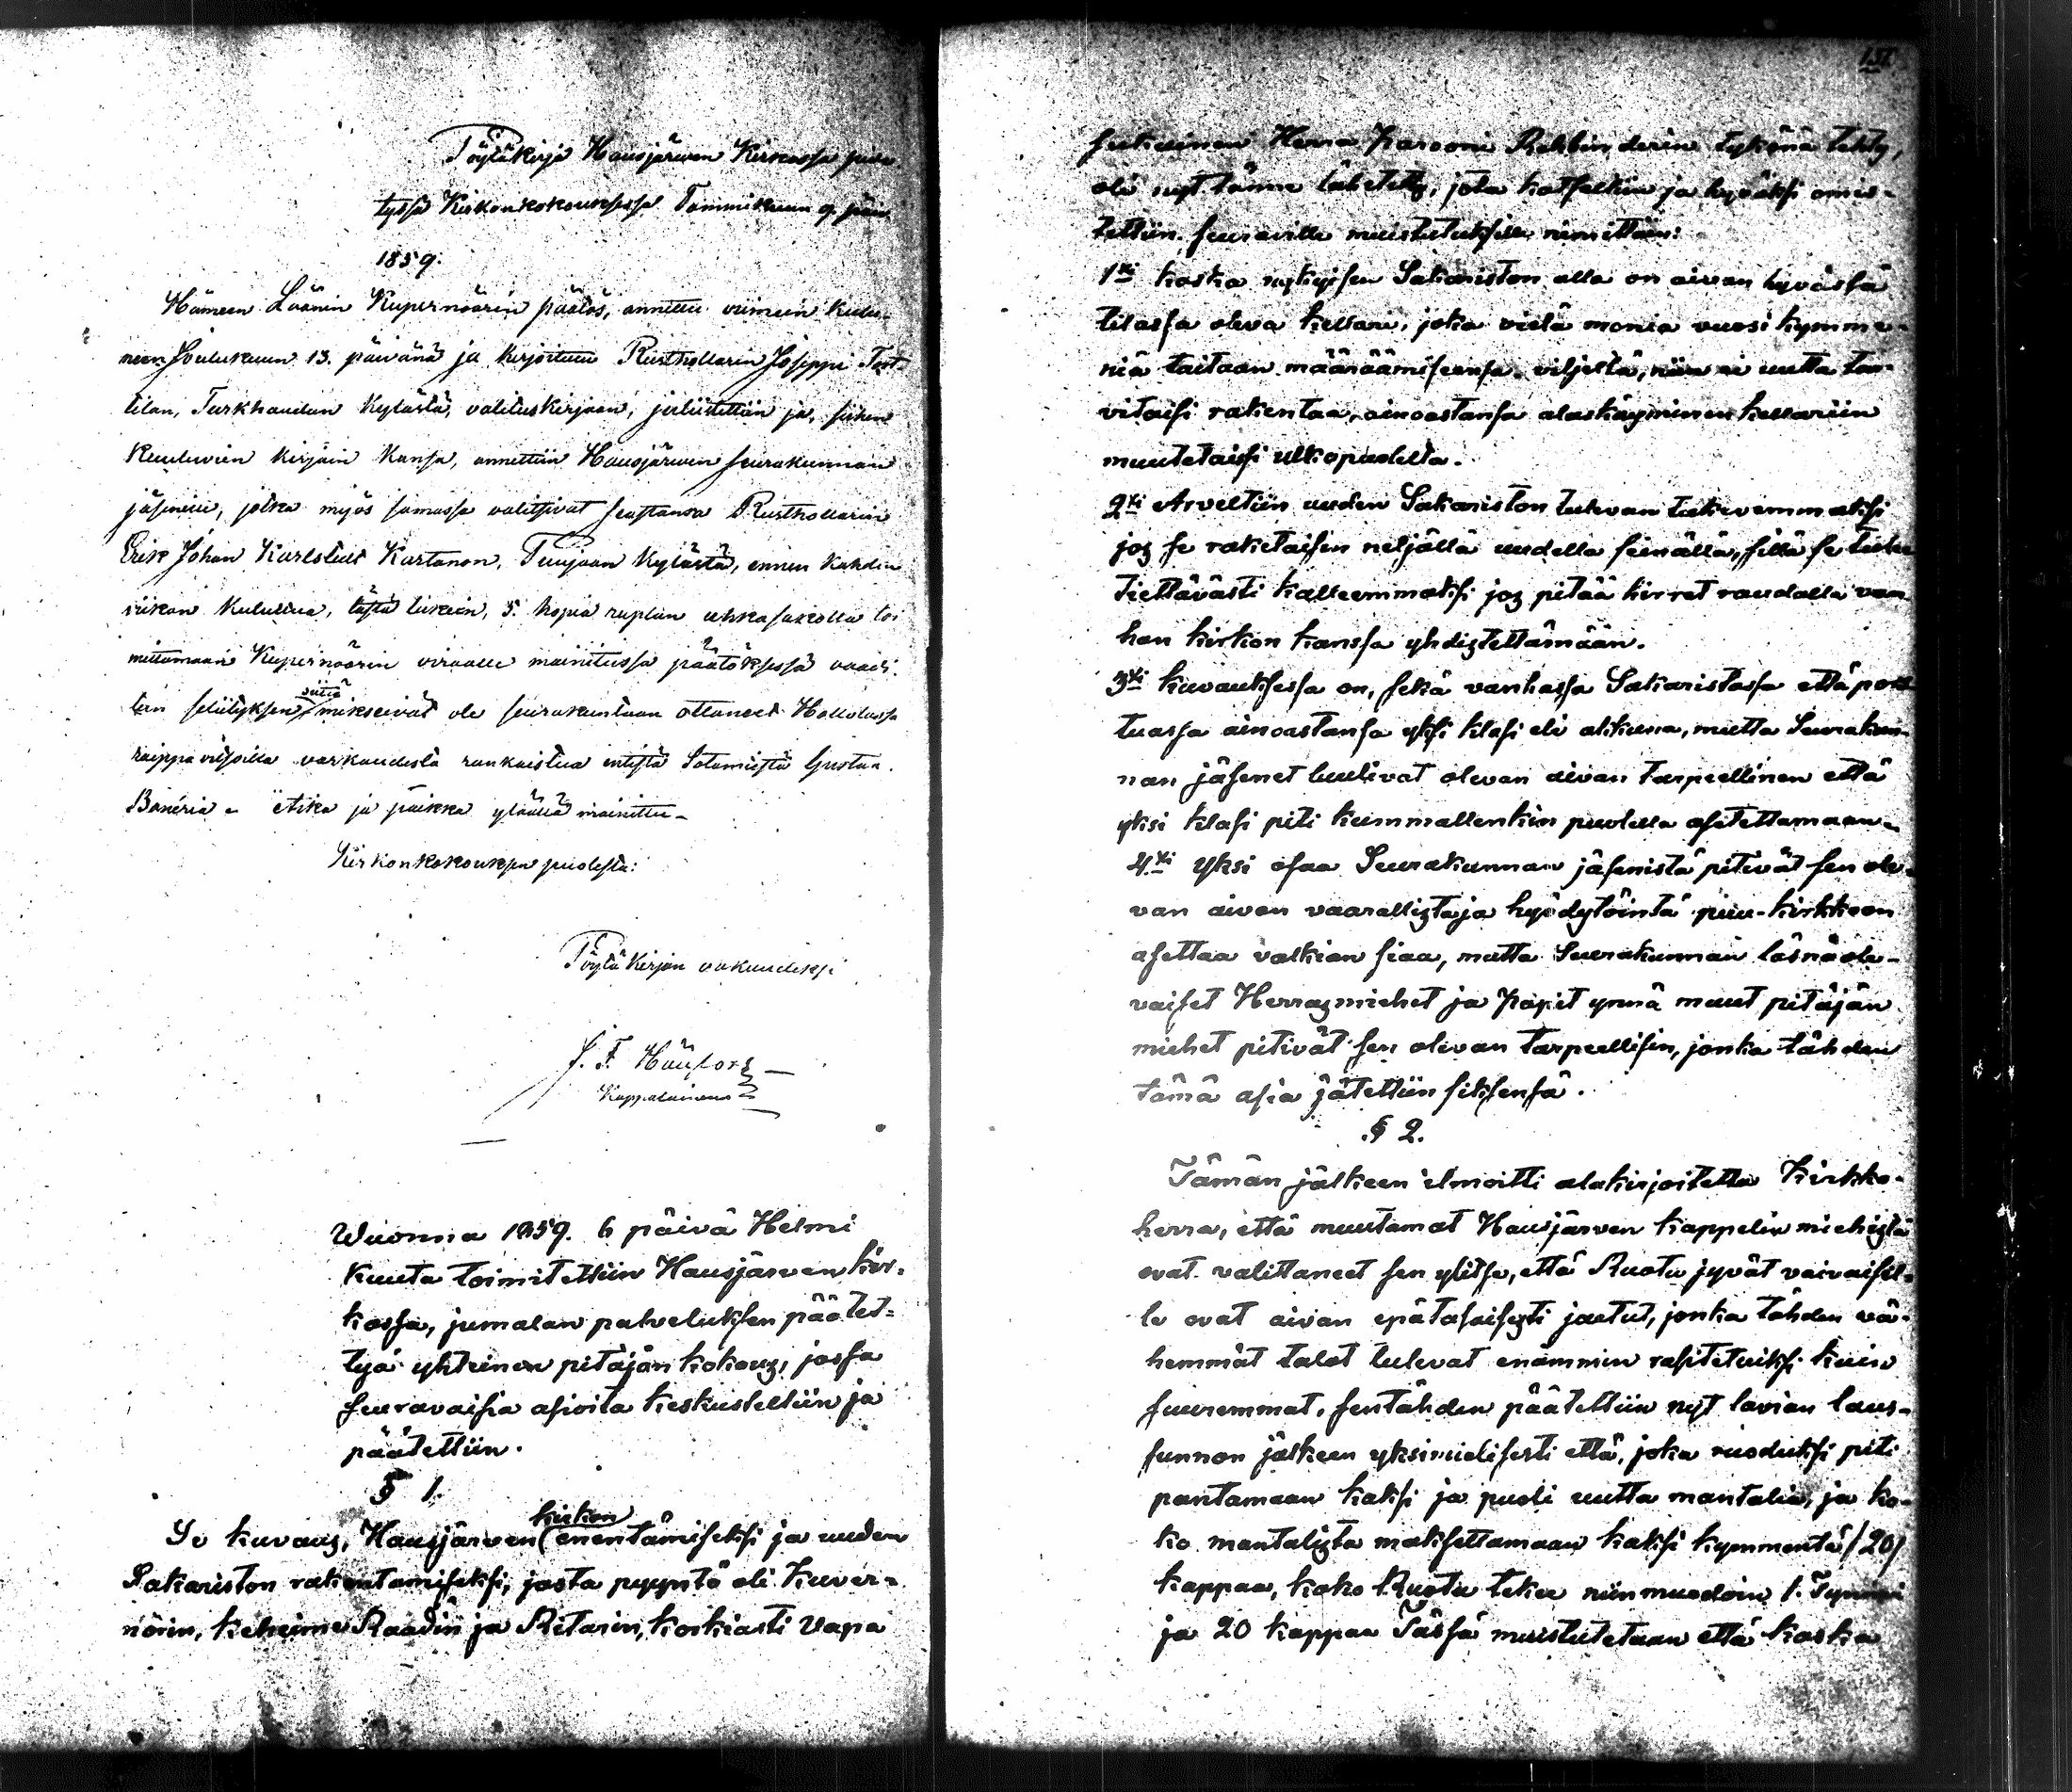 Pöytäkirja Hausjärwen Kirkossa pide-
tyssä Kirkonkokouksessa Tammikuun 9. päiv.
1859.
Hämeen Läänin Kupernöörin päätös, annettu viimein kulu-
neen Joulukuun 13. päivänä ja kirjoitettu Rusthollarin Joseppi
tilan, Turkhaudan Kylästä, valituskirjaan, julistettiin ja, siihen
kuuluvien kirjain kansa, annettiin Hausjärwen seurakunnan
jäsenille, jotka myös samassa valitsivat seastansa Rusthollarin
Erik Johan Karlstedt Kartanon, Puujaan Kylästä, ennen kahden
viikon kuluttua, tästä lukein, 5. hopia ruplan uhkasakolla toi
mittamaan Kupernöörin virualle mainitussa päätöksessä vaadi-
tun selityksen siitä mikseivät ole seurakuntaan ottaneet Hollolassa
raippavitsoilla varkaudesta rankaistua entistä Sotamiestä Gustaa.
Banéria - Aika ja paikka ylläällä mainittu -
Kirkonkokouksen puolesta:
Pöytäkirjan vakuudeksi
J. F.
Kappalainen
Wuonna 1859. 6 päivä Helmi
kuuta toimitettiin Hausjärven kir-
kossa, jumalan palveluksen päätet-
tyä yhteinen pitäjän kokous, jossa
seuravaisia asioita keskusteltiin ja
päätettiin.
§ 1.
Se kuvaus, Hausjärven kirkon enentämiseksi ja uuden
Sakariston rakentamiseksi, josta pyyntö oli Kuver-
nörin, keheimi Raadin ja Ritarin, korkiasti Vapa
151.
sukuinen Herra Parooni Rehbinderin tykönä tehty,
oli nyt tänne lähetetty, jota katseltiin ja hyväksi omis-
tettiin. seuraville muistutuksille nimittäin:
1ksi koska nykyisen Sakariston alla on aivan hyvässä
tilassa oleva kellari, joka vielä monia vuosi kymme-
niä taitaan määräämiseensä viljellä, niin ei uutta tar-
vitaisi rakentaa, ainoastansa alaskäyminen kellariin
muutetaissi ulkopuolelta.
2ksi Arveltiin uuden Sakariston tulevan tukevemmaksi
jos se raketaisin neljällä uudella seinällä, sillä se tulee
tiettävästi kalleemmaksi jos pitää hirret raudalla van-
han kirkon kanssa yhdistettämään.
3ksi kuvauksessa on, sekä vanhassa Sakaristossa että
tuassa ainoastansa yksi klasi eli akkuna, mutta Seurakun-
nan jäsenet luulivat olevan aivan tarpeellinen että
yksi klasi piti kummallenkin puolella asetettamaan.
4ksi Yksi osaa Seurakunnan jäsenistä pitivät sen ole-
van aivan vaarallista ja hyödytöintä puu-kirkkoon
asettaa valkian siaa, mutta Seurakunnan läsnäole-
vaiset Herrasmiehet ja Papit ynnä muut pitäjän
miehet pitivät sen olevan tarpeellisen, jonka tähden
tämä asia jätettiin siksensä.
§ 2.
Tämän jälkeen ilmoitti alakirjoitettu Kirkko-
herra, että muutamat Hausjärven kappelin miehistä
ovat valittaneet sen ylitse, että Ruotu jyvät vaivaisil-
le ovat aivan epätasaisesti jaetut, jonka tähden vä-
hemmät talot tulevat enämmin rasitetuiksi kuin
suuremmat, sentähden päätettiin nyt lavian laus-
sunnon jälkeen yksimielisesti että, joka ruoduksi piti
pantamaan kaksi ja puoli uutta mantalia, ja ko-
ko mantalista maksettamaan kaksi kymmentä /20/
kappaa, koko Ruotu tekee niinmuodoin 1. Tynnyri
ja 20 kappaa Tässä muistutetaan että koska